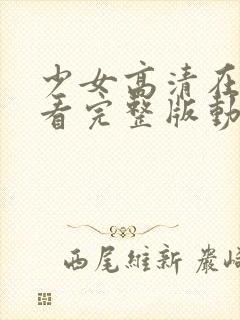 少女高清在
看完整版動
西尾維新 嚴崎